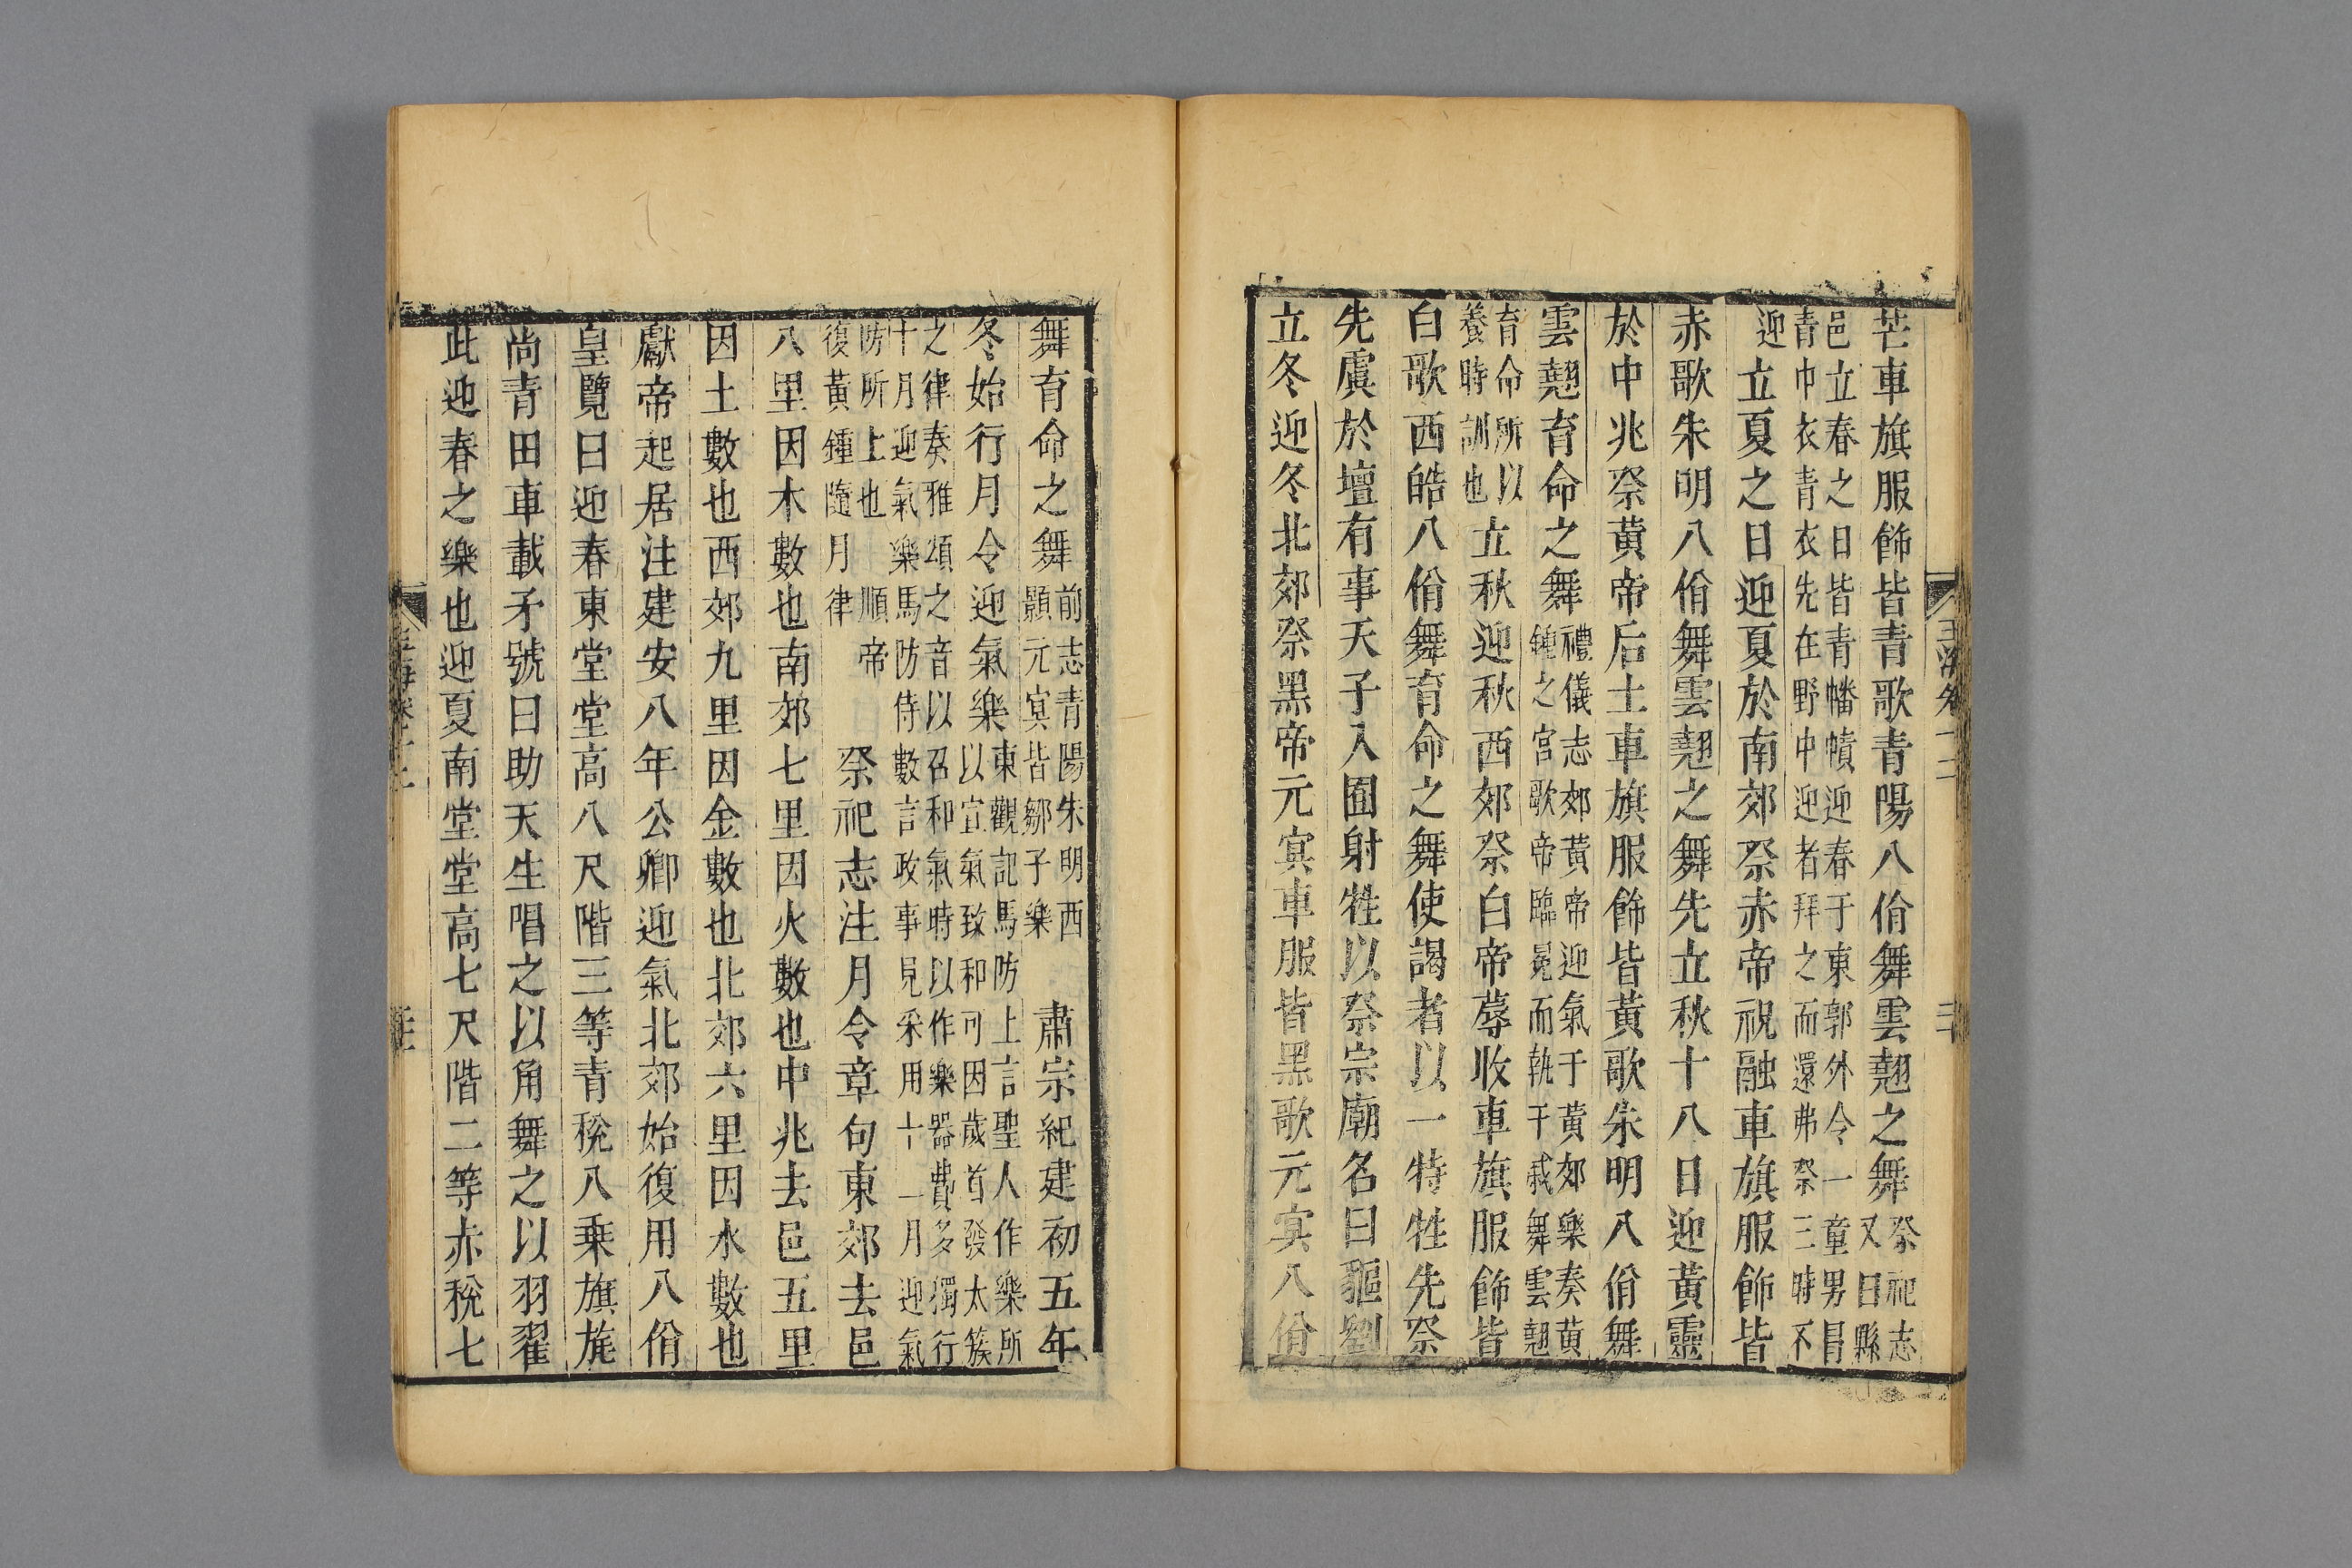 芒車旗服飾皆青歌青陽八佾舞雲翹之舞祭祀志又曰縣
邑立春之日皆青幡幘迎春于東郭外令一童男冒青巾衣青衣先在野中迎者拜之而還弗祭三時不
迎立夏之日迎夏於南郊祭赤帝祝融車旗服飾皆
赤歌朱明八佾舞雲翹之舞先立秋十八日迎黃靈
於中兆祭黃帝后土車旗服飾皆黃歌朱明八佾舞
雲翹育命之舞禮儀志郊黃帝迎氣于黃郊樂奏黃鍾之宮歌帝臨冕而執干戚舞雲翹
育命所以養時訓也立秋迎秋西郊祭白帝蓐收車旗服飾皆
白歌西皓八佾舞育命之舞使謁者以一特牲先祭
先虞於壇有事天子入囿射牲以祭宗廟名曰貙劉
立冬迎冬北郊祭黑帝元冥車服皆黑歌元冥八佾
舞育命之舞前志青陽朱明西顥元冥皆鄒子樂肅宗紀建初五年
冬始行月令迎氣樂東觀記馬防上言聖人作樂所以宣氣致和可因歲首發太簇
之律奏雅頌之音以召和氣時以作樂器費多獨行十月迎氣樂馬防侍數言政事見采用十一月迎氣
防所上也順帝復黃鍾隨月律祭祀志注月令章句東郊去邑
八里因木數也南郊七里因火數也中兆去邑五里
因土數也西郊九里因金數也北郊六里因水數也
獻帝起居注建安八年公卿迎氣北郊始復用八佾
皇覽曰迎春東堂堂高八尺階三等青稅八乗旗旄
尚青田車載矛號曰助天生唱之以角舞之以羽翟
此迎春之樂也迎夏南堂堂高七尺階二等赤稅七